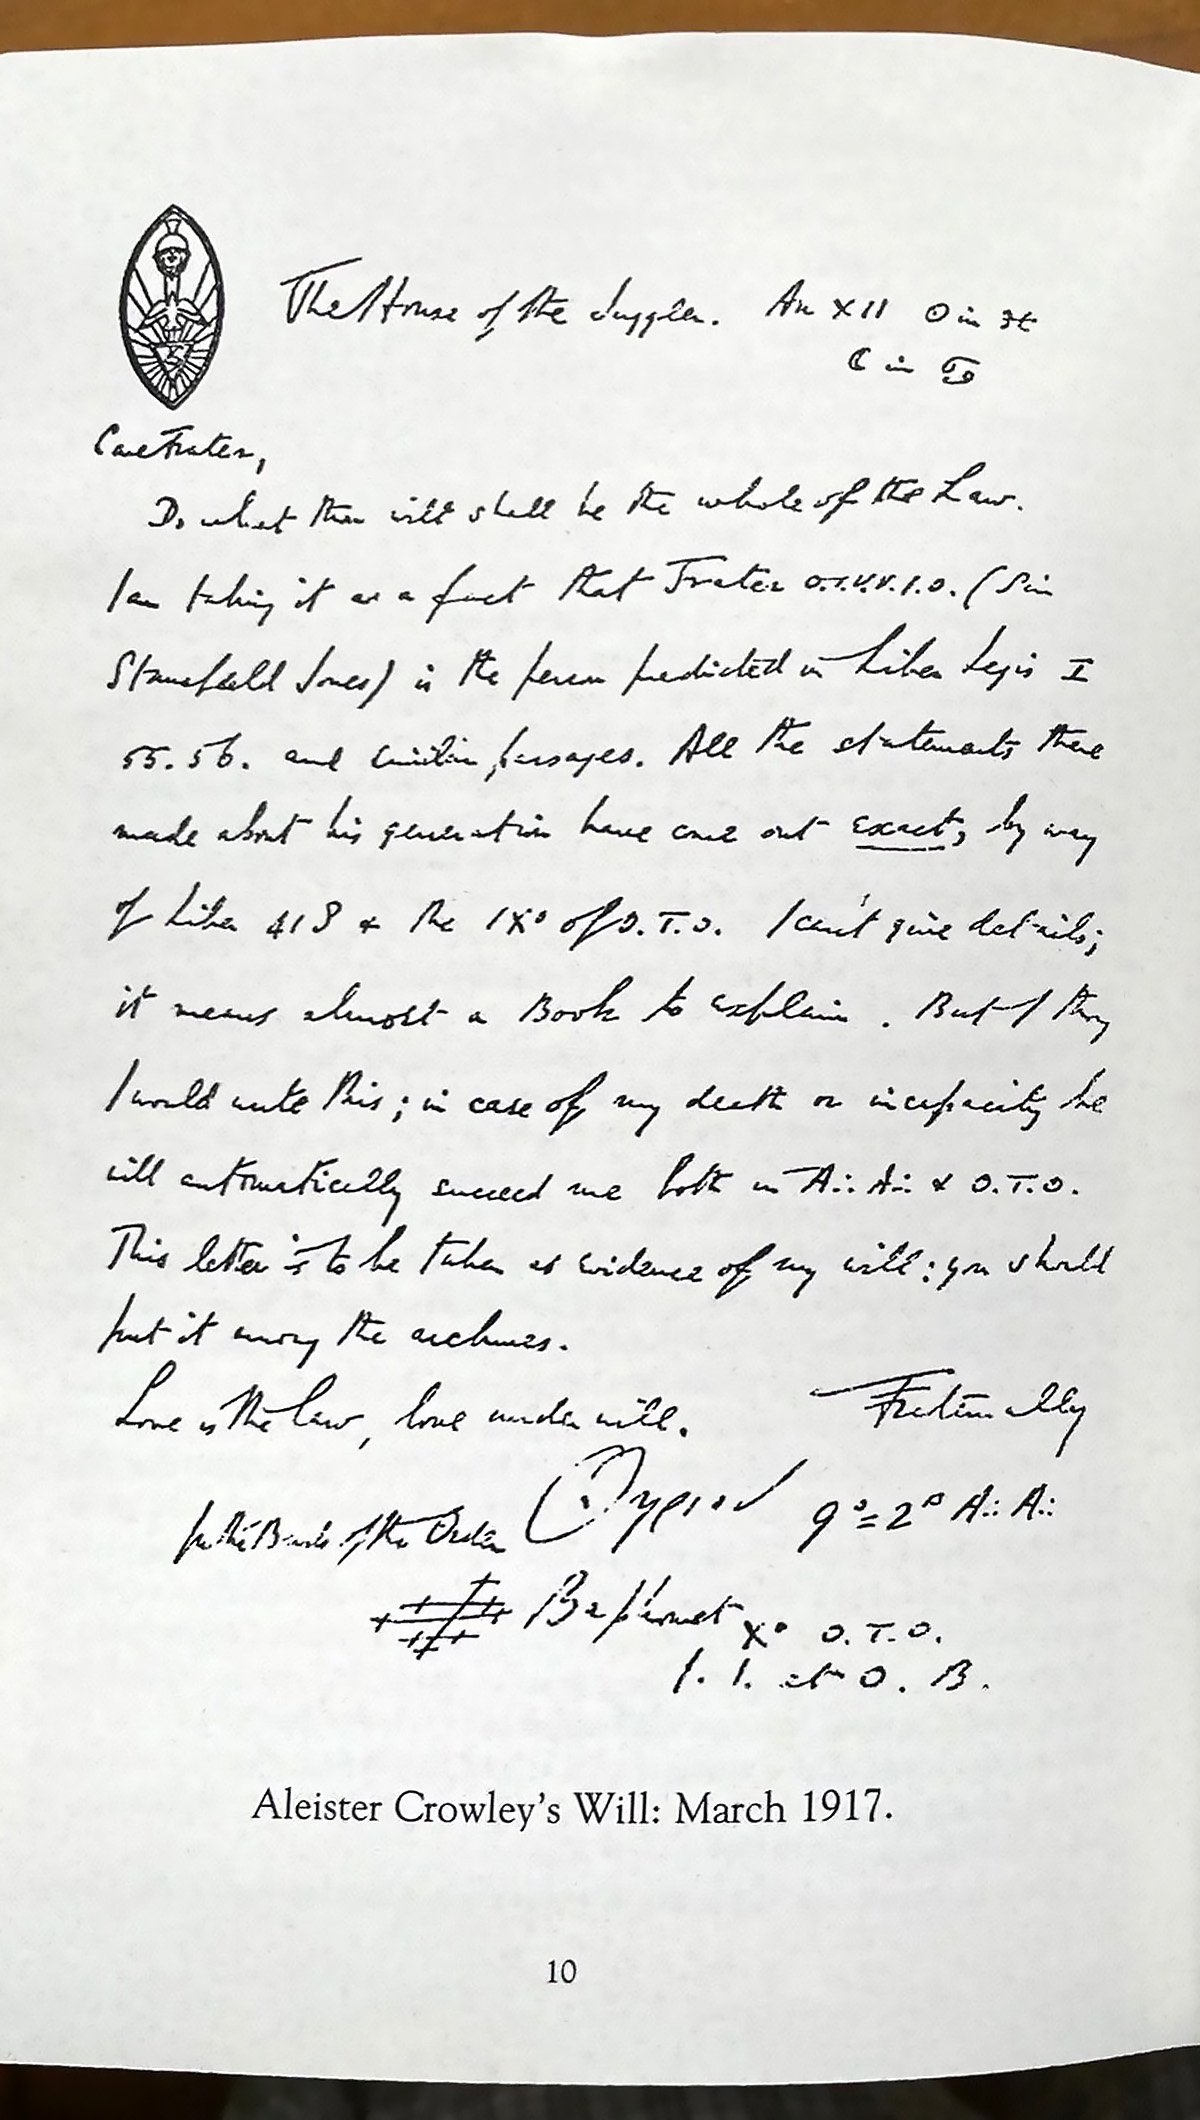 The House of the Juggler. An XII ☉ in ♓
☾ in ♋
Care Frater,
Do what thou wilt shall be the whole of the Law.
I am taking it as a fact that Frater O.I.V.V.I.O. (Sir
Stansfeld Jones) is the person predicted in Liber Legis I
55. 56. and similar passages. All the statements there
made about his generation have come out exact, by way
of Liber 418 & the IX° of O.T.O. I can't give details;
it means almost a Book to explain. But I
I would write this; in case of my death or incapacity he
will automatically succeed me both in A∴ A∴ & O.T.O.
This letter is to be taken as evidence of my will: you should
put it among the archives.
Love is the law, love under will. Fraternally
of the Order 9°=2° A∴ A∴
Baphomet X° O.T.O.
I. I. et O. B.
Aleister Crowley's Will: March 1917.
10